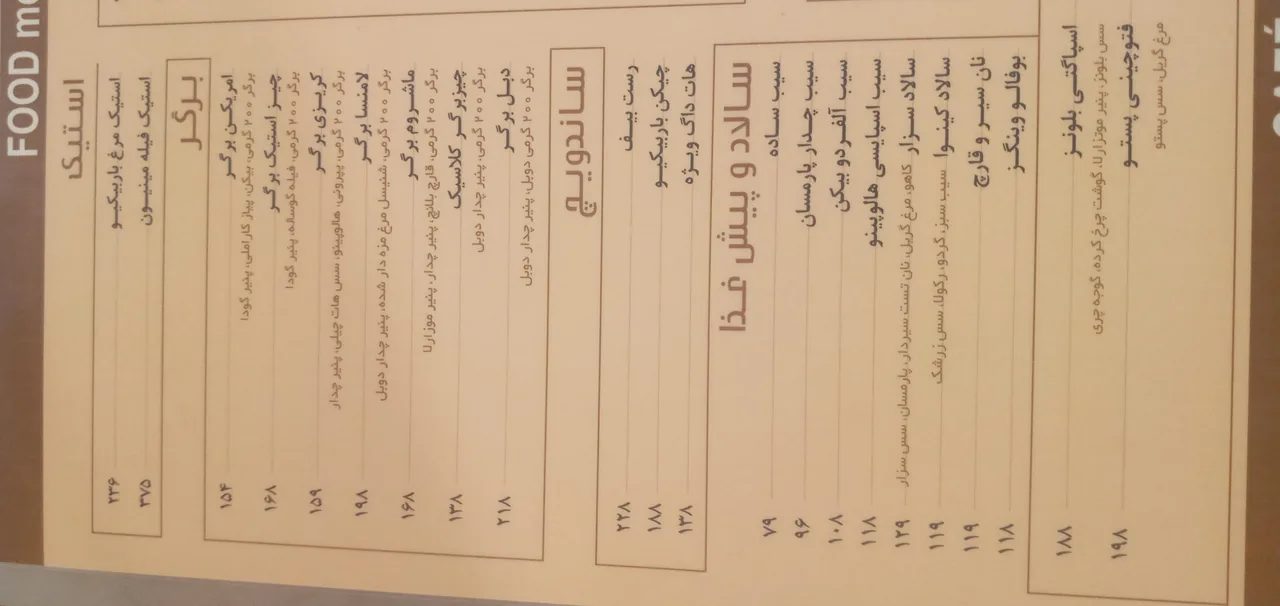 FOOD
استیک
استیک مرغ باربیکیو ۲۳۶
استیک فیله مینیون ۳۷۵
برگر
امریکن برگر ۱۵۴
برگر ۲۰۰ گرمی، بیکن، پیاز کاراملی، پنیر گودا
چیز استیک برگر ۱۶۸
برگر ۲۰۰ گرمی، فیله گوساله، پنیر گودا
کریزی برگر ۱۵۹
برگر ۲۰۰ گرمی، پپرونی، هالوپینو، سس هات چیلی، پنیر چدار
لامسا برگر ۱۹۸
برگر ۲۰۰ گرمی، شنیسل مرغ مزه دار شده، پنیر چدار دوبل
ماشروم برگر ۱۶۸
برگر ۲۰۰ گرمی، قارچ بلانچ، پنیر چدار، پنیر موزارلا
چیزبرگر کلاسیک ۱۳۸
برگر ۲۰۰ گرمی، پنیر چدار دوبل
دبل برگر ۲۱۸
برگر ۲۰۰ گرمی دوبل، پنیر چدار دوبل
ساندویچ
رست بیف ۲۲۸
چیکن باربیکیو ۱۸۸
هات داگ ویژه ۱۳۸
سالاد و پیش غذا
سیب ساده ۷۹
سیب چدار پارمسان ۹۶
سیب آلفردو بیکن ۱۰۸
سیب اسپایسی هالوپینو ۱۱۸
سالاد سزار کاهو، مرغ گریل، نان تست سیردار، پارمسان، سس سزار ۱۲۹
سالاد کینوا سیب سبز، گردو، رکولا، سس زرشک ۱۱۹
نان سیر و قارچ ۱۱۹
بوفالو وینگز ۱۱۸
اسپاگتی بلونز ۱۸۸
سس بلونز، پنیر موتزارلا، گوشت چرخ کرده، گوجه چری
فتوچینی پستو ۱۹۸
مرغ گریل، سس پستو